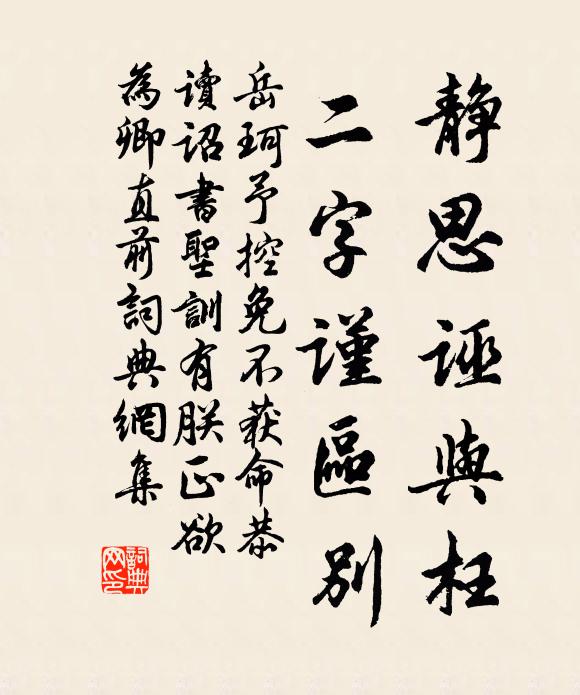 静思誣與枉
二字謹區別
岳珂予控免不获命恭
讀詔書聖訓有朕正欲
為卿直前詞典網集
詞典网印